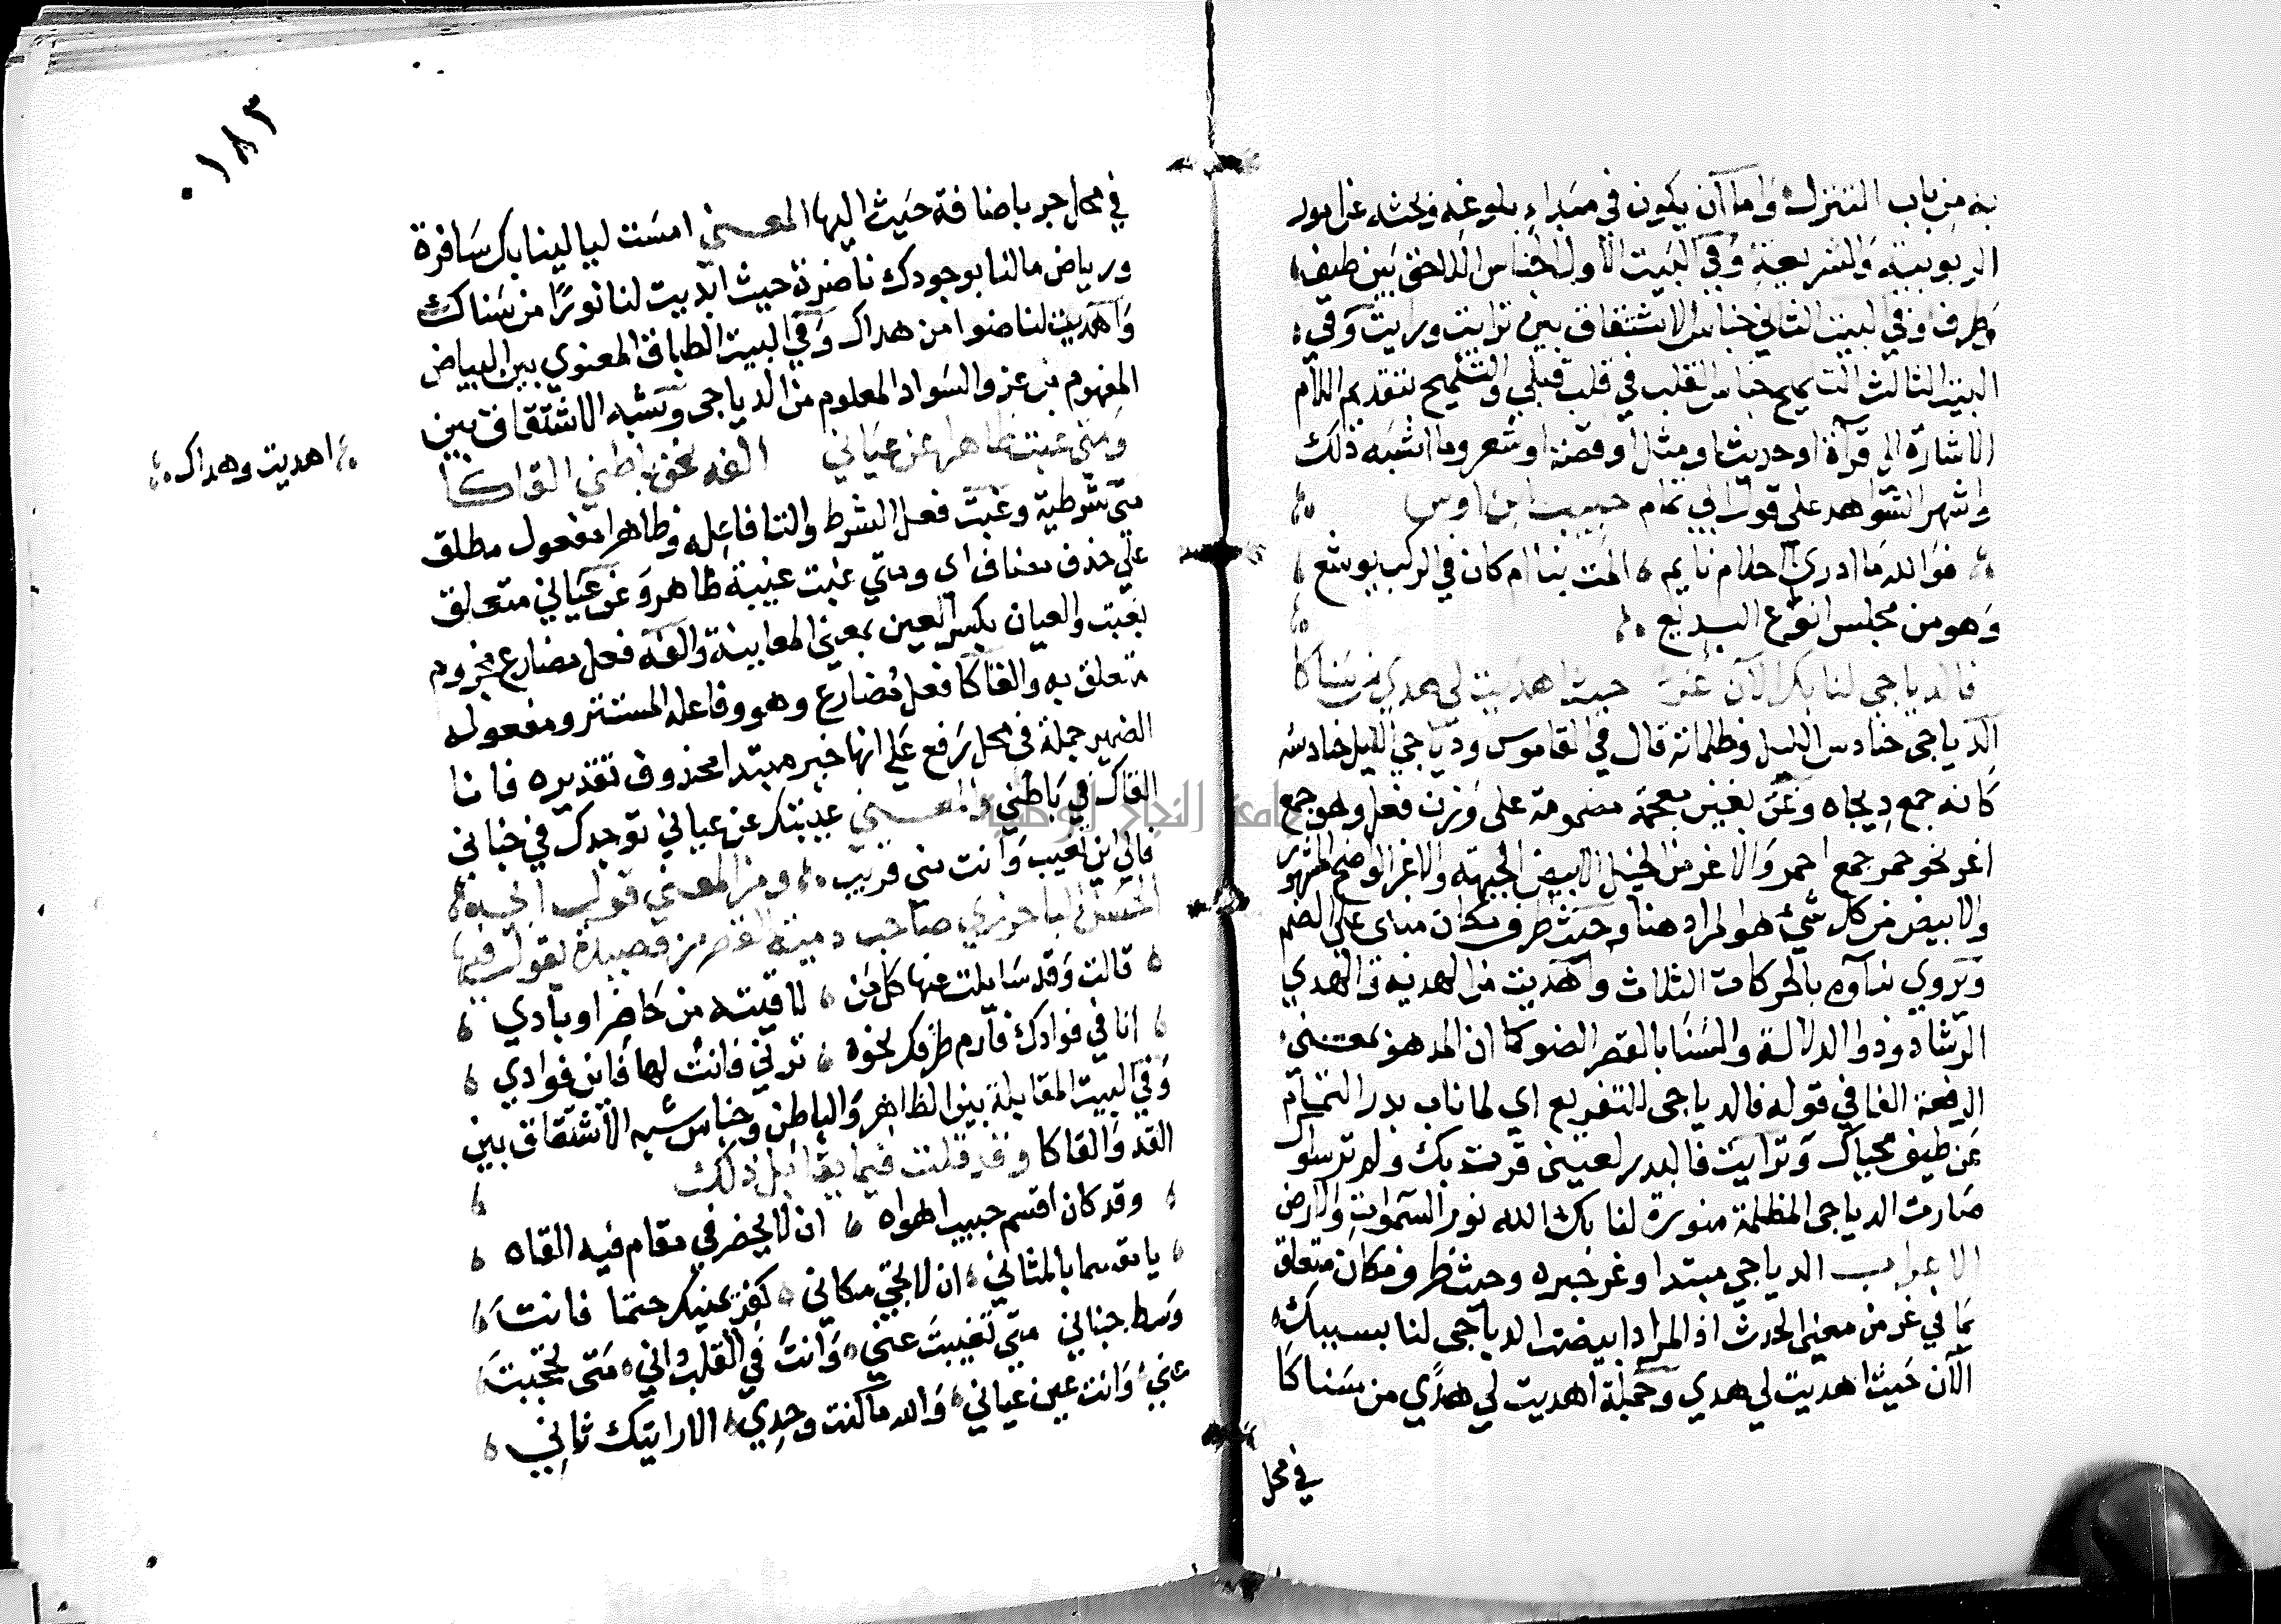 به من باب التنزل واما ان يكون في مبداء بلوغه وبحثه عن امور
الربوبية والشريعة وفي البيت الاول الجناس اللاحق بين طيف
وطرف وفي البيت الثاني جناس الاشتقاق بين ترايت ورايت وفي
البيت الثالث التـ جناس القلب في قلب قبلي والتلميح بتقديم اللام
الاشارة الى قرآة او حديث او مثل او قصة او شعر وما اشبه ذلك
واشهر الشواهد على قول ابي تمام حبيب ابن اوس
فوالله ما ادري احلام نايم المت بنا ام كان في الركب يوشع
وهو من مجلس انوع البديع
فالدياجي لنا بك الآن غر حيث اهديت لي هدي من سناكا
الدياجى حنادس الليل وظلمانه قال في القاموس ودياجي الليل حنادسه
كانه جمع ديجاه وغر بغين معجمة مضمومة على وزن فعل وهو جمع
اغر نحو حمر جمع احمر والاغر من الخيل الابيض الجبهة والاغر الواضح المشهور
والابيض من كل شيء هو المراد هنا وحيث ظرف مكان مبنى على الضم
وتروي ثاوه بالحركات الثلاث واهديت من الهدية والهدي
الرشاد و والدلالة والسنا بالقصر الضو كما ان المد هو بمعنى
الرفعة الفا في قوله فالدياجى للتفريع اي لما ناب بدر التمام
عن طيف محياك وترايت فالبدر لعيني قرت بك ولم تر سواك
صارت الدياجى المظلمة منورة لنا بك الله نور السموات والارض
الاعراب الدياجي مبتدا وغر خبره وحيث ظرف مكان متعلق
بما في غر من معنى الحدث اذ المراد ابيضت الدياجى لنا بسببك
الآن حيث اهديت لي هدي وجملة اهديت لي هدي من سناكا
في محل
١٨٣
في محل جر باضافة حيث اليها المعنى امست ليالينا بك سافرة
ورياض مالنا بوجودك ناضرة حيث ابديت لنا نورا من سناك
واهديت لنا ضوا من هداك وفي البيت الطباق المعنوي بين البياض
المفهوم من غر والسواد المعلوم من الدياجى وشبه الاشتقاق بين
اهديت وهداك
ومتى غبت ظاهرا عن عياني الفه نحو باطني القاكا
متى شرطية وغبت فعل الشرط والتا فاعله وظاهرا مفعول مطلق
على حذف مضاف اي ومتى غبت غيبة ظاهر وعن عياني متعلق
بغبت والعيان بكسر العين بمعنى المعاينة والفه فعل مضارع مجزوم
متعلق به والقاكا فعل مضارع وهو وفاعله المستتر ومفعوله
الضمير جملة في محل رفع على انها خبر مبتدا محذوف تقديره فانا
القاك في باطني والمعنى غيبتك عن عياني توجدك في جناني
فالى اين تغيب وانت منى قريب ومن المعنى قول ابي
الحسن الباخرزي صاحب دمية القصر من قصيدة يقول فيها
قالت وقد سايلت عنها كل من لاقيته من حاضر او بادي
انا في فوادك فارم طرفك نحوه ترني فانت لها فاين فوادي
وفي البيت المقابلة بين الظاهر والباطن وجناس شبه الاشتقاق بين
الفه والقاكا وقد قلت فيما يقابل ذلك
وقد كان اقسم حبيب اهواه ان لا يحضر في مقام فيه القاه
يا مقسما بالمثاني ان لا تجي مكاني كفر يمينك حتما فانت
وسط جناني متى تغيبت عني وانت في القلب داني متى تحجبت
عني وانت عين عياني والله ما كنت وحدي الا رايتك ثاني